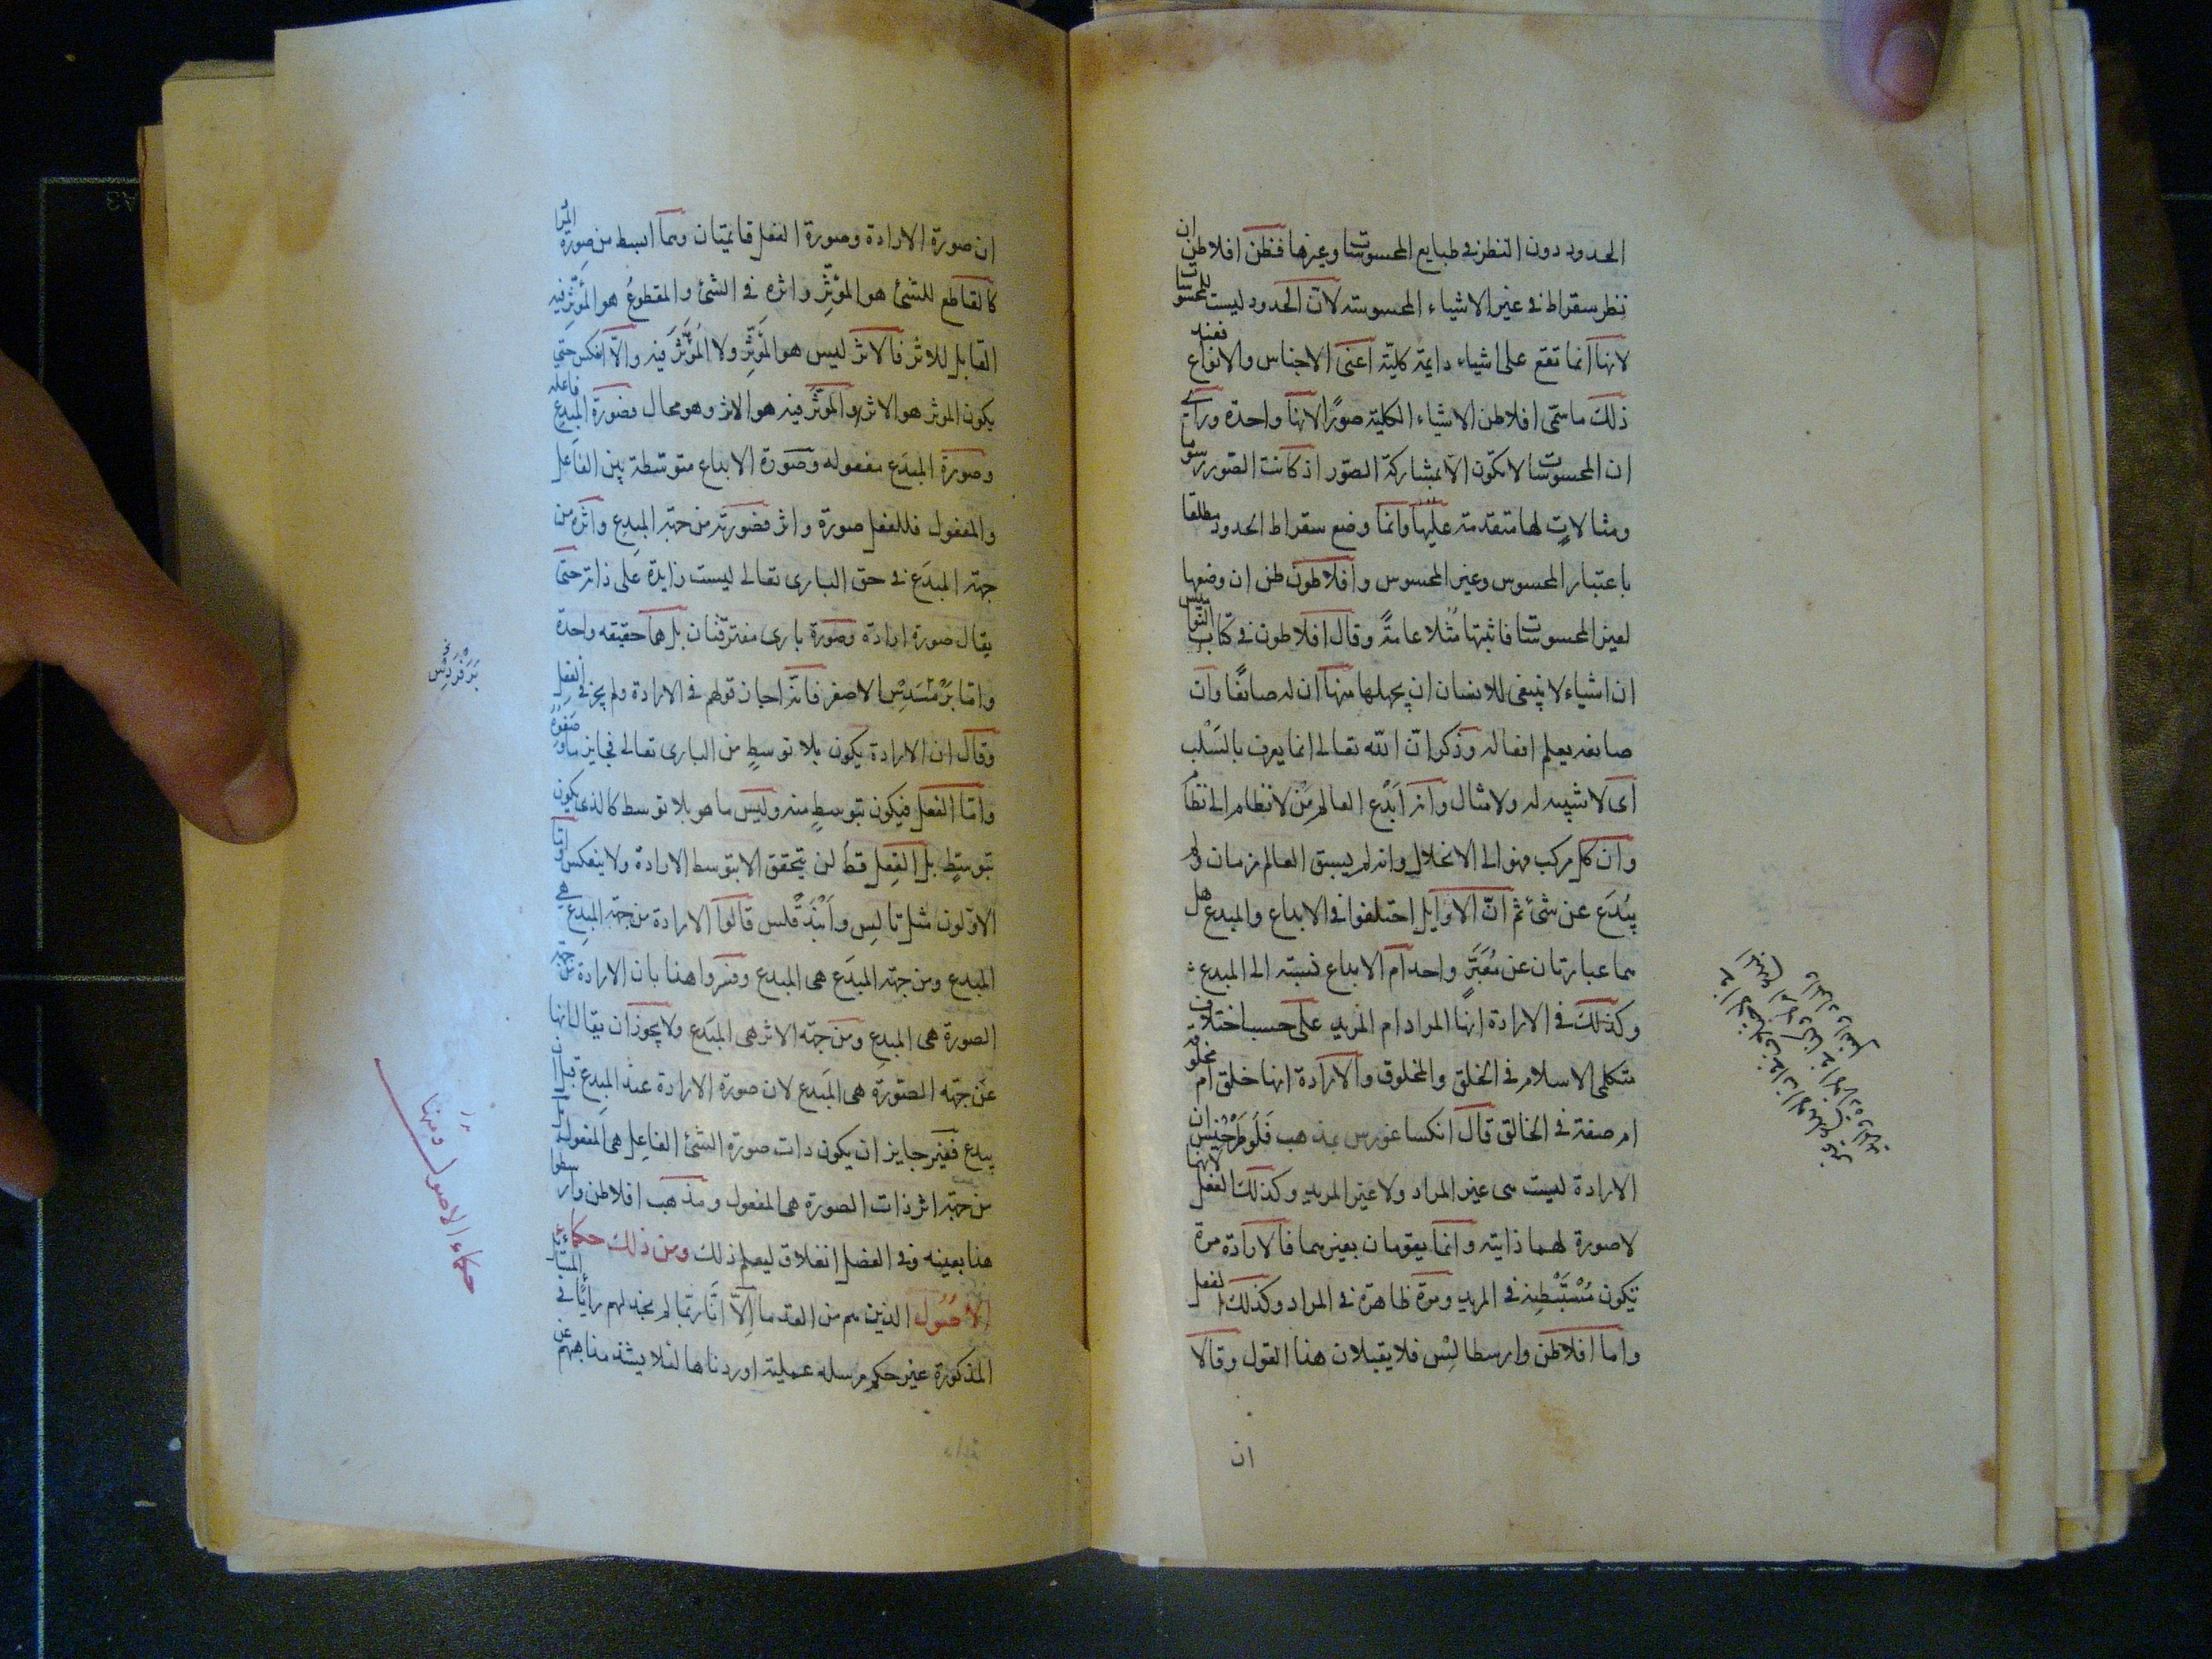 الحدود دون النظر في طبايع المحسوسات وغيرها فظن افلاطن ان
نظر سقراط في غير الاشياء المحسوسة لان الحدود ليست للمحسوسات
لانها انما تقع على اشياء دايمة كلية اعنى الاجناس والانواع فعند
ذلك ما سمى افلاطن الاشياء الكلية صورًا لانها واحدة وراى
ان المحسوسات لا تكون الا بمشاركة الصور اذ كانت الصور رسوما
ومثالاتٍ لها متقدمة عليها وانما وضع سقراط الحدود مطلقا
باعتبار المحسوس وغير المحسوس وافلاطون ظن ان وضعها
لغير المحسوسات فاثبتها مُثُلا عامةً وقال افلاطون في كتاب النواميس
ان اشياء لا ينبغى للانسان ان يجهلها منها ان له صانعًا وان
صانعه يعلم افعاله وذكر ان الله تعالى انما يعرف بالسَلْب
اى لا شبيه له ولا مثال وانه اَبْدَع العالم مِنْ لا نظام الى نظام
وان كل مركب فهو الى الانحلال وانه لم يسبق العالم زمان ولم
يُبْدَع عن شئ ثم انّ الاوايل اختلفوا في الابداع والمبدع هل
هما عبارتان عن مُعَبَّرٍ واحد ام الابداع نسبته الى المبدع
وكذلك في الارادة انها المراد ام المريد على حسب اختلاف
متكلمى الاسلام في الخلق والمخلوق والارادة انها خلق ام مخلوقة
ام صفة في الخالق قال انكساغورس بمذهب فَلُوطَرْخِيْس ان
الارادة ليست هى غير المراد ولا غير المريد وكذلك الفعل لانهما
لا صورة لهما ذاتية وانما يقومان بغيرهما فالارادة مرة
تكون مُسْتَبْطِنة في المريد ومرة ظاهرة في المراد وكذلك الفعل
واما افلاطن وارسطاليْس فلا يقبلان هذا القول وقالا
ان
ان صورة الارادة وصورة الفعل قائمتان وهما ابسط من صورة المراد
كالقاطع للشئ هو المؤثِّر واثره في الشئ والمقطوع هو المؤثَّر فيه
القابل للاثر فالاثر ليس هو المؤثِّر ولا المُؤثَّرَ فيه والّا انعكس حتى
يكون المؤثر هو الاثر والمؤثَّر فيه هو الاثر وهو محال فصورة المبدع فاعلة
وصورة المبدَع مفعوله وصورة الابداع متوسطة بين الفاعل
والمفعول فللفعل صورة واثر فصورته من جهة المبدِع واثره من
جهة المبدَع في حق البارى تعالى ليست زايدة على ذاته حتى
يقال صورة ارادة وصورة بارى مفترقتان بل هما حقيقه واحدة
واما بَرْمَنيدِس الاصغر فانه اجاز قولهم في الارادة ولم يجز في الفعل
وقال ان الارادة يكون بلا توسطٍ من البارى تعالى فجايز ما
واما الفعل فيكون بتوسطٍ منه وليس ما هو بلا توسط كالذى يكون
بتوسطٍ بل الفِعل قطُ لن يتحقق الا بتوسط الارادة ولا ينعكس واما
الاولون مثل تاليس واَنْبَدُقْلس قالوا الارادة من جهة المبدِع هى
المبدع ومن جهة المبدَع هى المبدع وفسروا هذا بان الارادة من جهة
الصورة هى المبدِع ومن جهة الاثر هى المبدَع ولا يجوز ان يقال انها
من جهة الصورة هى المبَدع لان صورة الارادة عند المبدع قبل ان
يبدع فغير جايز ان يكون ذات صورة الشئ الفاعِل هى المفعول بل
من جهة اثر ذات الصورة هى المفعول ومذهب افلاطن وارسطو
هذا بعينه وفى الفصل انغلاق ليعلم ذلك ومن ذلك حكماء
الاصُول الذين هم من القدما اِلاّ انّا ربّما لم نجد لهم رأيًا في المسائل
المذكورة غير حكم مرسله عملية اوردناها لئلا يشذ مذاهبهم عن
حكماء الاصول ومنها